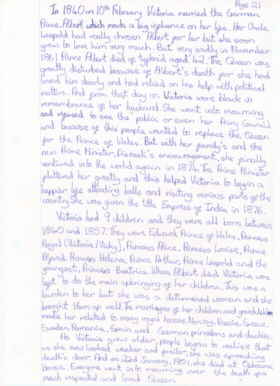 Page (2)
In 1840 on 10th February Victoria married the German
Prince Albert which made a big difference on her life. Her Uncle
Leopold had really chosen Albert for her but she soon
grew to love him very much. But very sadly in November
1861 Prince Albert died of typhoid aged 42. The Queen was
greatly disturbed because of Albert's death for she had
loved him dearly and had relied on his help with political
matters. And from that day on Victoria wore black in
remembrance of her husband. She went into mourning
and refused to see the public or even her Privy Council
and because of this people wanted to replace the Queen
for the Prince of Wales. But with her family's and the
new Prime Minister, Disraeli's encouragement, she finally
ventured into the world again in 1874. The Prime Minister
flattered her greatly and this helped Victoria to begin a
happier life attending balls and visiting various parts of the
country. She was given the title Empress of India in 1876.
Victoria had 9 children and they were all born between
1840 and 1857. They were Edward Prince of Wales, Princess
Royal (Victoria / Vicky), Princess Alice, Princess Louise, Prince
Alfred, Princess Helena, Prince Arthur, Prince Leopold and the
youngest, Princess Beatrice. When Albert died Victoria was
left to do the main upbringing of her children. This was a
burden to her but she was a determined woman and she
brought them up well. The marriages of her children and grandchildren
made her related to many royal houses: Norway, Russia, Greece,
Sweden, Romania, Spain and German princedoms and duchies.
As Victoria grew older, people began to realise that
as she was looking weaker and frailer, she was approaching
death's door. And on 22nd January, 1901, she died at Osborne
House. Everyone went into mourning over the death of a
much respected and loved Queen.